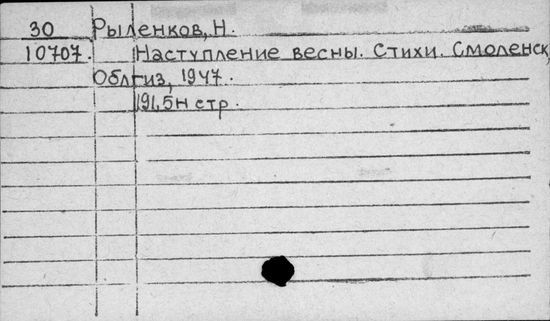 30 Рыленков, Н.
10707. Наступление весны. Стихи. Смоленск,
Облгиз, 1947.
191,5н стр.